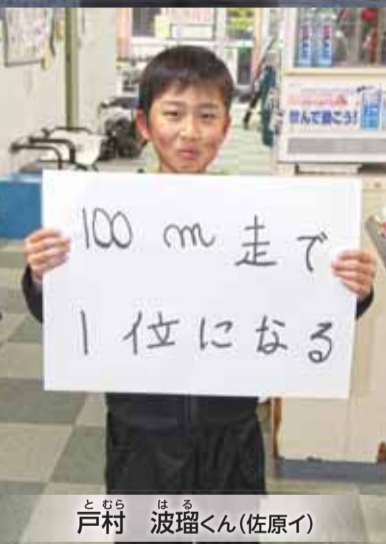 飲んで動こう!
100m走で
1位になる
と むら は る
戸村 波瑠くん(佐原イ)